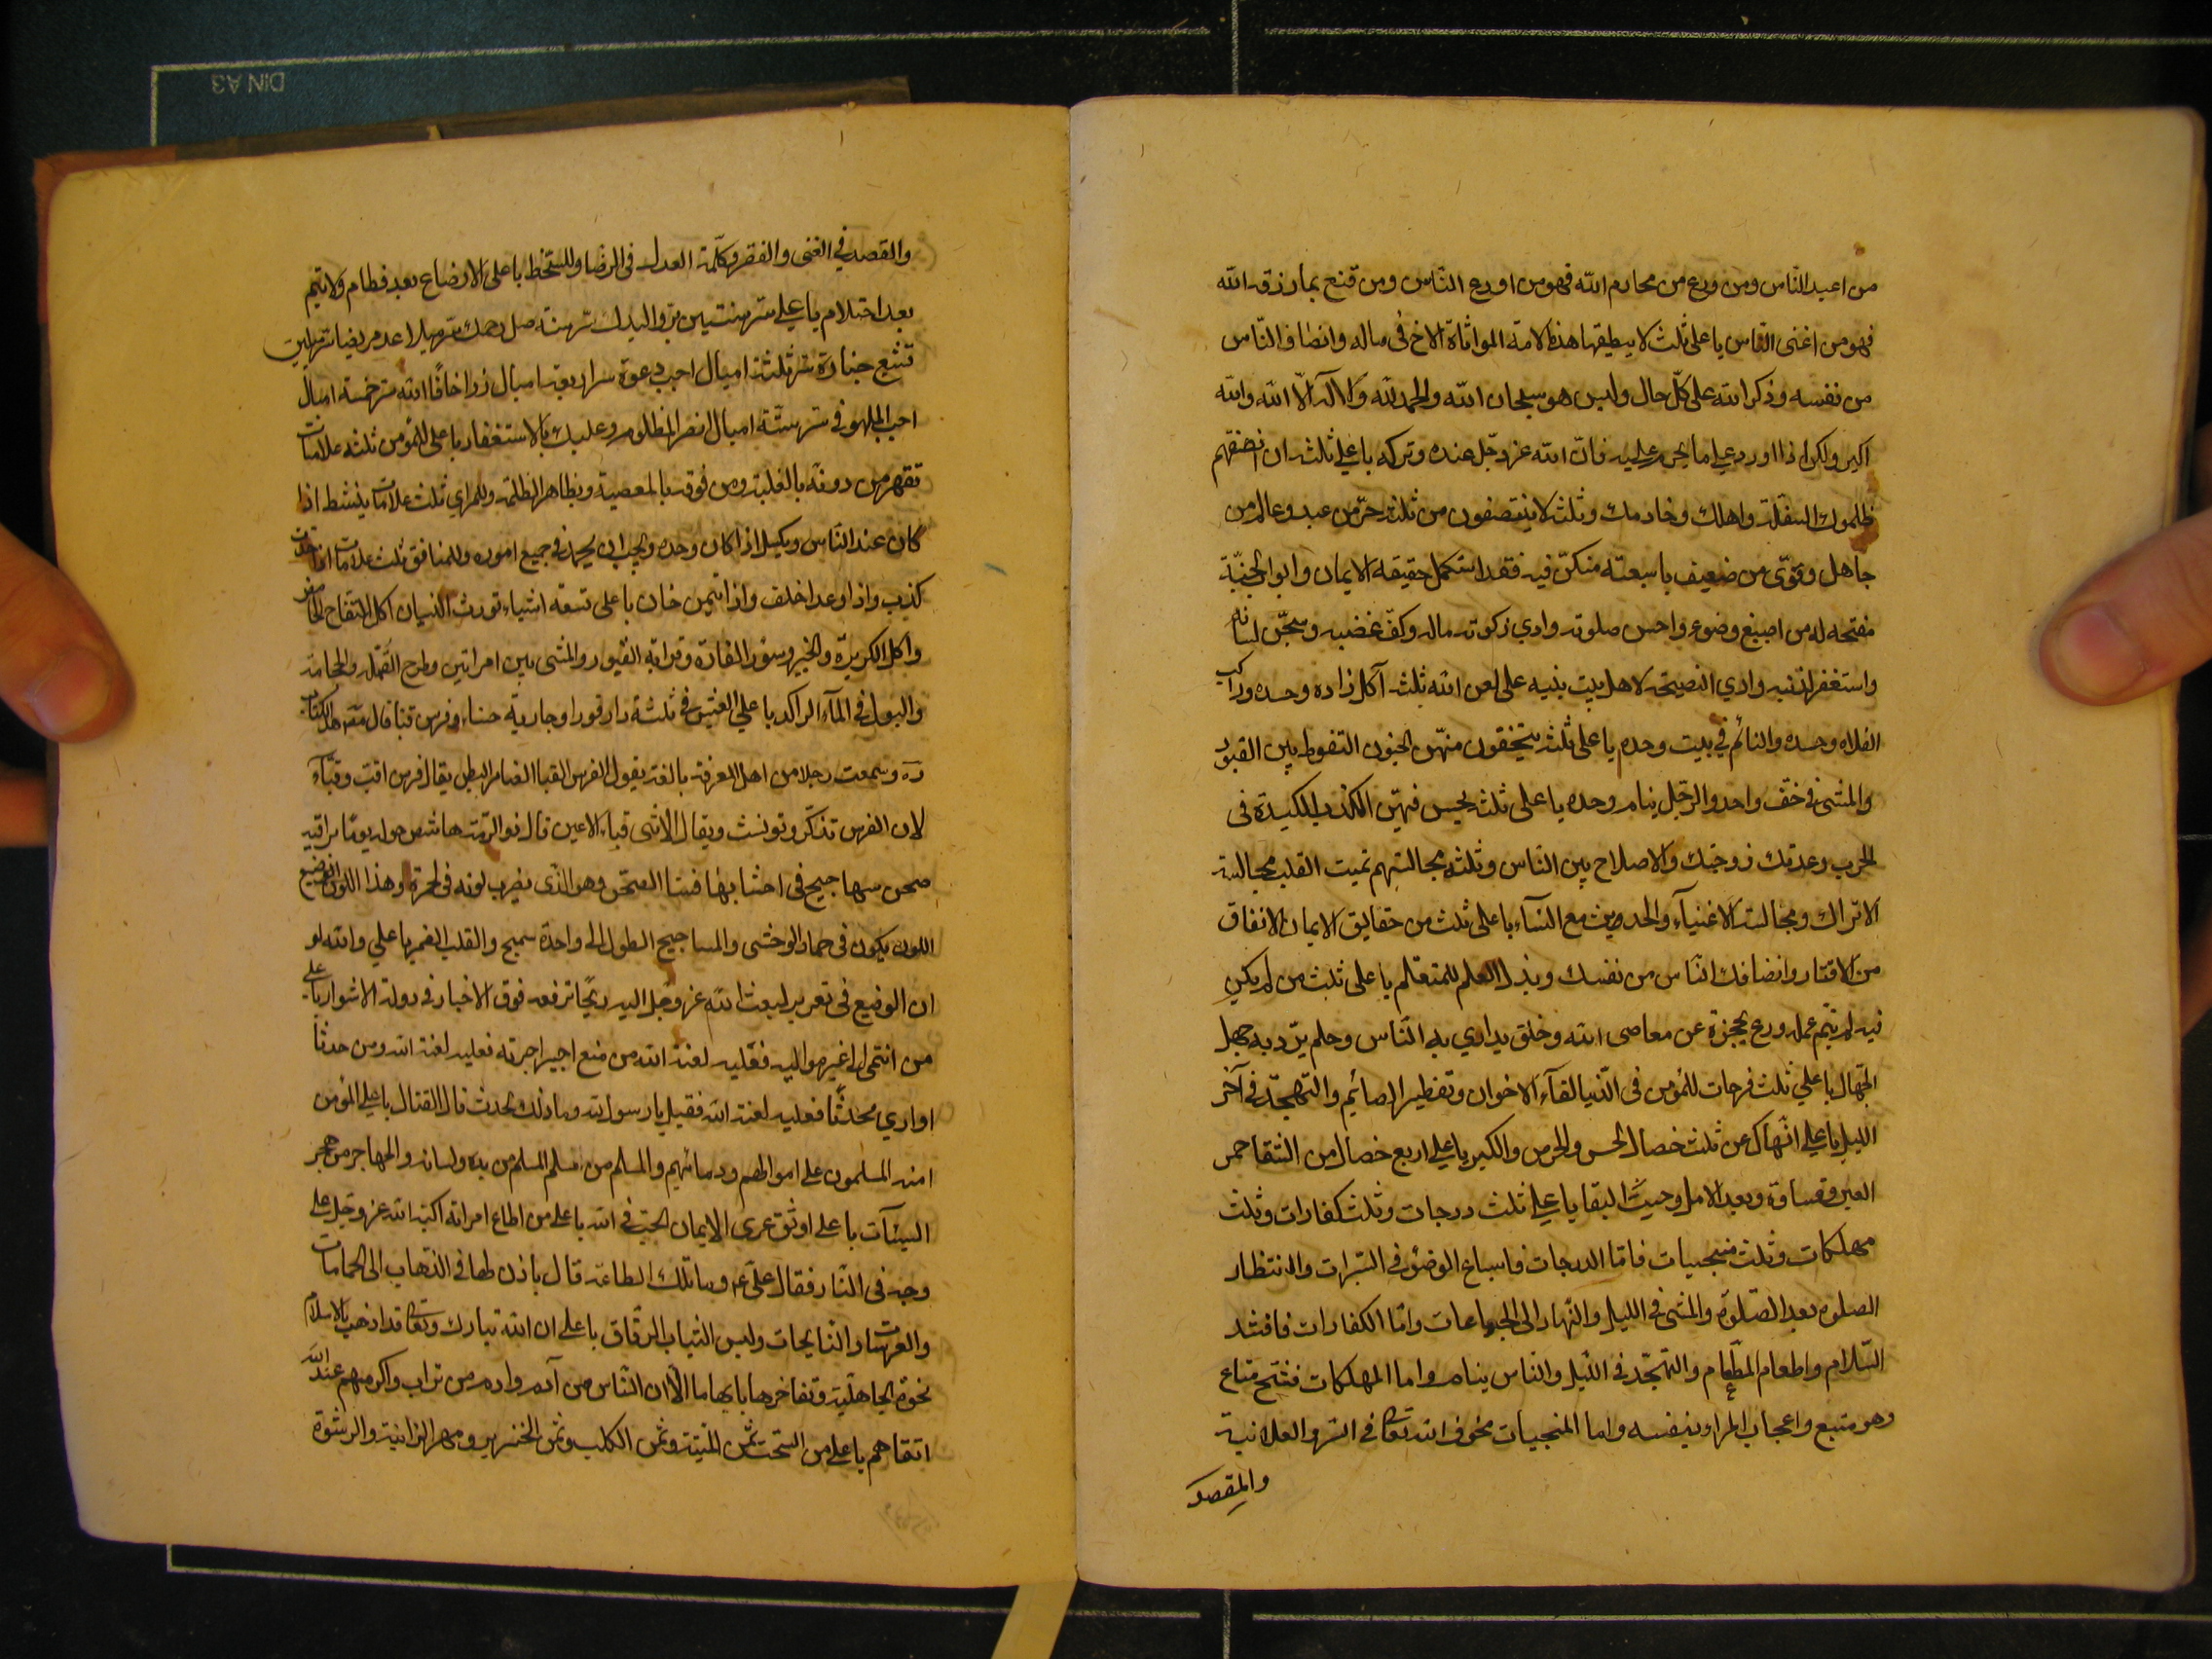 من اعبد النّاس ومن ورع من محارم الله فهو من اورع النّاس ومن قنع بما رزقه الله
فهو من اغنى النّاس يا على ثلث لا يطيقها هذه الامة المواساة الاخ فى ماله وانصاف النّاس
من نفسه وذكر الله على كلّ حال وليس هو سبحان الله والحمد لله ولا اله الّا الله والله
اكبر ولكن اذا ورد على ما يحرم عليه خاف الله عز وجل عنده وتركه يا علي ثلثة ان انصفتهم
ظلموك السفلة واهلك وخادمك وثلثة لا ينتصفون من ثلثة حرّ من عبد وعالم من
جاهل وقوّى من ضعيف يا سبعة من كنّ فيه فقد استكمل حقيقة الايمان وابواب الجنّة
مفتحه له من اصبغ وضوءه واحسن صلوته وادي زكوته ماله وكفّ غضبه وسجن لسانه
واستغفر لذنبه وادي النصيحة لاهل بيت نبيه على لعن الله ثلثة آكل زاده وحده وراكب
الفلاه وحده والنائم في بيت وحده يا على ثلث يتخوفون منهنّ الجنون التغوط بين القبور
والمشى فى خفّ واحد والرّجل ينام وحده يا على ثلث يحسن فيهنّ الكذب المكيدة فى
الحرب وعدتك زوجتك والاصلاح بين الناس وثلثة مجالستهم تميت القلب مجالسة
الانزال ومجالسة الاغنيآء والحديث مع النسآء يا على ثلث من حقايق الايمان الانفاق
من الاقتار وانصافك النّاس من نفسك وبذل العلم للمتعلم يا على ثلث من لم يكن
فيه لم يتم عمله ورع يحجزه عن معاصى الله وخلق يداري به النّاس وحلم يرّد به جهل
الجّهال يا علي ثلث فرحات للمؤمن فى الدّنيا لقآء الاخوان وتفطير الصائم والتهجّد فى آخر
الليل يا علي انهاك عن ثلث خصال الحسد والحرص والكبر يا علي اربع خصال من الشقا جمود
العين وقساوة وبعد الامل وحبّ البقا يا علي ثلث درجات وثلث كفارات وثلث
مهلكات وثلث منجيات فامّا الدرجات فاسباغ الوضوء فى السّبرات والانتظار
الصلوة بعد الصّلوة والمشى فى الليل والنّهار الى الجماعات وامّا الكفارات فافشاء
السّلام واطعام الطّعام والتهجّد فى اللّيل والناس ينام واما المهلكات فشح مطاع
وهو متبع واعجاب المراء بنفسه واما المنجيات فخوف الله تعا فى السّر والعلانية
والقصد
والقصد في الغنى والفقر وكلمة العدل فى الرضا والسّخط يا على لا رضاع بعد فطام ولا يتم
بعد احتلام يا علي سر سنتين بر والديك سر سنة صل رحمك سر ميلا عد مريضا سر ميلين
تشيع جنازة سر ثلثة اميال اجب دعوة سر اربعة اميال زر اخا فى الله سر خمسة اميال
اجب الملهوف سر ستّة اميال انصر المظلوم وعليك بالاستغفار يا على للمؤمن ثلثة علامات
يقهر من دونه بالغلبة ومن فوقه بالمعصية ويظاهر الظلمة وللمرائي ثلث علامات ينشط اذا
كان عند النّاس ويكسل اذا كان وحده ويحب ان يحمد فى جميع اموره وللمنافق ثلث علامات اذا حدث
كذب واذا وعد اخلف واذا ائتمن خان يا على تسعة اشياء تورث النسيان اكل التفاح الحامض
واكل الكزبرة والجبن وسؤر الفارة وقراءة القبور والمشى بين امراتين وطرح القملة والحجامة
والبول فى المآء الراكد يا علي العيش فى ثلثة دار قورا وجارية حسناء وفرس قبا قال مصنف هذا الكتاب
ره وسمعت رجلا من اهل المعرفة بالفقه يقول الفرس القبا الضامر البطن يقال فرس اقب وقبّآء
لان الفرس تذكّر وتونث ويقال للانثى قباء لا غير قال ذو الرمّة
صحن سماجيج فى احشابها قبب الصحر وهو الذّى يضرب لونه فى الحمرة وهذا اللون
اللون يكون فى حمار الوحشى والسماجيج الطول الى واحدة سمجج والقلب الضمر يا علي والله لو
ان الوضيع فى قعر بير لبعث الله عز وجل اليه ريحًا ترفعه فوق الاخيار فى دولة الاشرار يا على
من انتمى الى غير مواليه فعليه لعنة الله من منع اجيرا اجرته فعليه لعنة الله ومن حدثًا
او ارى محدثًا فعليه لعنة الله فقيل يا رسول الله وما ذلك الحدث قال القتال يا علي المؤمن
امنه المسلمون على اموالهم ودمائهم والمسلم من سلم المسلم من يده ولسانه والمهاجر من هجر
السيئآت يا على اوثق عرى الايمان الحبّ فى الله يا على من اطاع امراته اكبه الله عز وجل على
وجه فى النّار فقال علي ع وما تلك الطاعة قال ياذن لها فى الذهاب الى الحمامات
والعرسات والنّايحات ولبس الثياب الرقاق يا على ان الله تبارك وتعا قد اذهب بالاسلام
نخوة الجاهليّة وتفاخرها بابهاما الّا ان النّاس من آدم وادم من تراب واكرمهم عند الله
اتقاهم يا على من السّحت ثمن الميتة وثمن الكلب وثمن الخنزير ومهر الزانية والرشوة